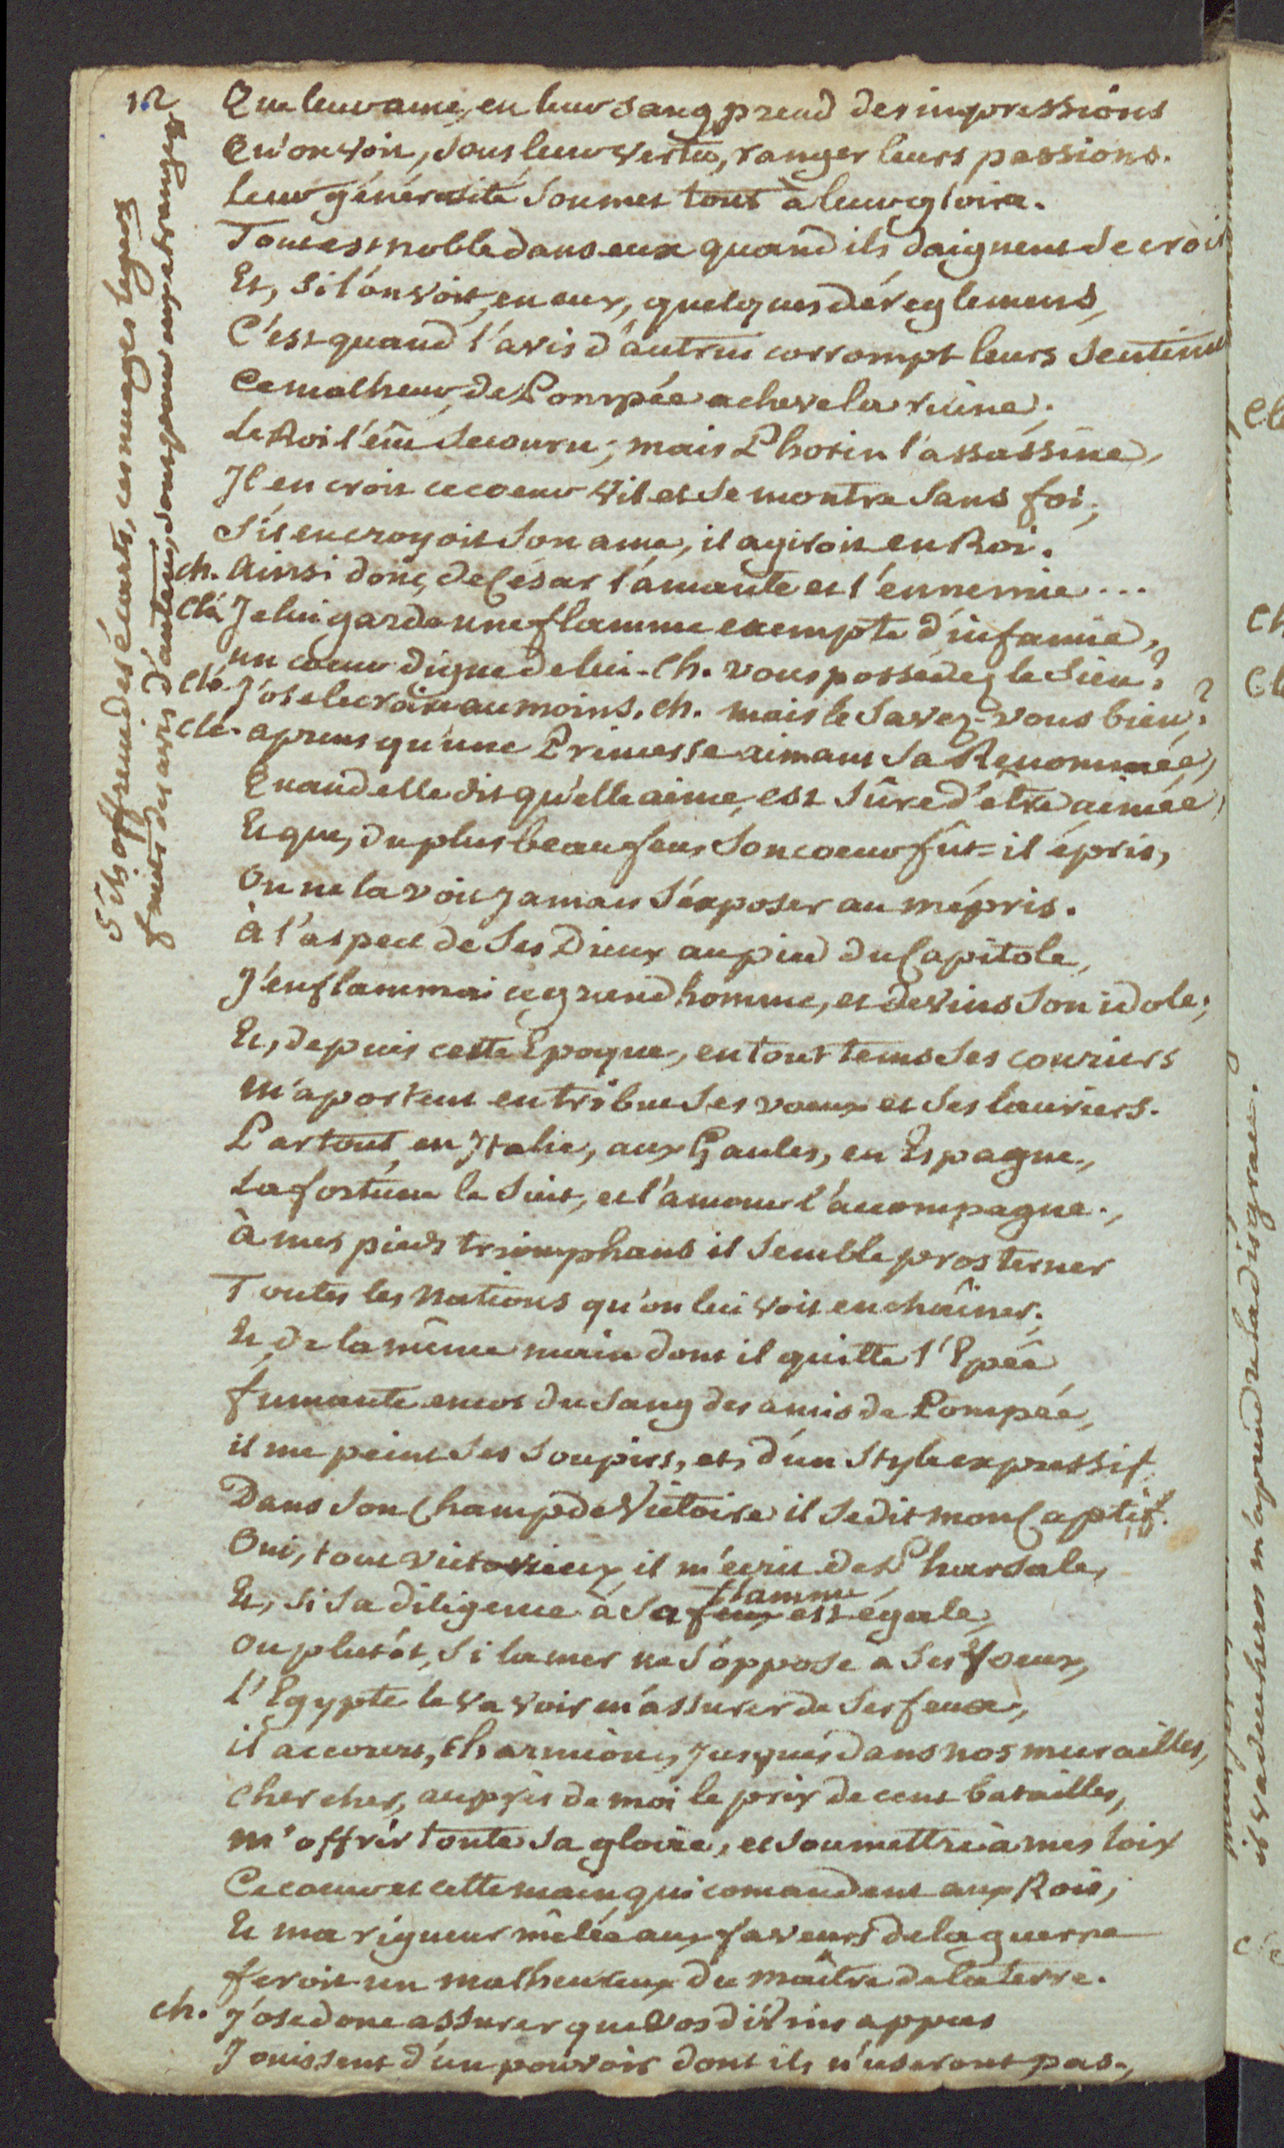 12
Que leur ame, en leur sang prend des impressions
Qu'on voit, sous leur vertu, ranger leurs passions.
leur générosité soumet tout à leur gloire.
Tout est noble dans eux quand ils daignent se croir
Et, si l'on voit, en eux, quelques déréglemens,
C'est quand l'avis d'autrui corrompt leurs sentime
Ce malheur, de Pompée acheve la ruine;
Le Roi l'eût secouru; mais Photin l'assassine,
Il en croit ce coeur vil et se montre sans foi;
S'il en croyoit son ame, il agiroit en Roi.
ch. Ainsi donc, de César l'amante et l'ennemie...
Clé. Je lui garde une flamme exempte d'infamie,
un coeur digne de lui - Ch. vous possédez le sien?
Clé. J'ose le croire au moins. ch. mais le savez-vous bien?
Clé. aprens qu'une Princesse aimant sa Renommée,
Quand elle dit qu'elle aime, est sûre d'etre aimée,
Et que, du plus beau feu, son coeur fût-il épris,
On ne la voit jamais s'exposer au mépris.
à l'aspect de ses Dieux au pied du Capitole,
J'enflammai ce grand homme, et devins son idole;
Et, depuis cette Epoque, en tout tems ses couriers
m'aportent en tribut ses voeux et ses lauriers.
Partout, en Italie, aux Gaules, en Espagne,
La fortune le suit, et l'amour l'accompagne.,
à mes pieds triomphans il semble prosterner
Toutes les Nations qu'on lui voit enchaîner;
Et, de la même main dont il quitte l'Epée
fumante encor du sang des amis de Pompée,
il me peint ses soupirs, et, d'un style expressif
Dans son Champ de Victoire il se dit mon Captif.
Oui, tout victorieux, il m'ecrit de Pharsale,
Et, si sa diligence à sa feux flamme est égale,
Ou plutôt, si la mer ne s'oppose à ses voeux,
L'Egypte le va voir m'assurer de ses feux,
il accourt, Charmion, jusques dans nos murailles,
Chercher, auprès de moi le prix de cent batailles,
m'offrir toute sa gloire, et soumettre à mes loix
Ce coeur et cette main qui comandent aux Rois,
Et ma rigueur mêlée aux faveurs de la guerre
feroit un malheureux du maître de la terre.
ch. J'ose donc assurer que vos divins appas
Jouissent d'un pouvoir dont ils n'useront pas.,
S'ils offrent des écarts, ces nuages legers
fruits des avis d'autrui, sont pour eux etrangers
il va du heros m'aprendre la disgrace.
Clé
Ch
Cl